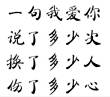 一句我爱你
说了多少次
换了多少人
伤了多少心